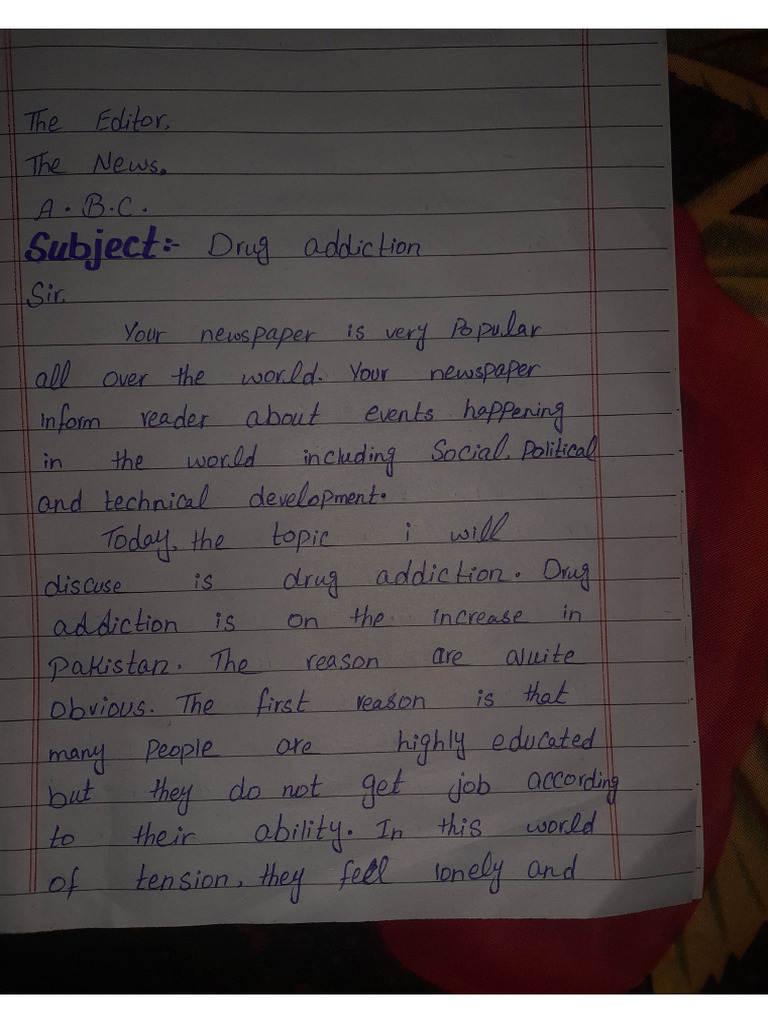 The Editor,
The News,
A.B.C.
Subject:- Drug addiction
Sir,
Your newspaper is very Popular
all over the world. Your newspaper
inform reader about events happening
in the world including Social, Political
and technical development.
Today, the topic i will
discuse is drug addiction. Drug
addiction is on the increase in
Pakistan. The reason are quite
obvious. The first reason is that
many people are highly educated
but they do not get job according
to their ability. In this world
of tension, they feel lonely and